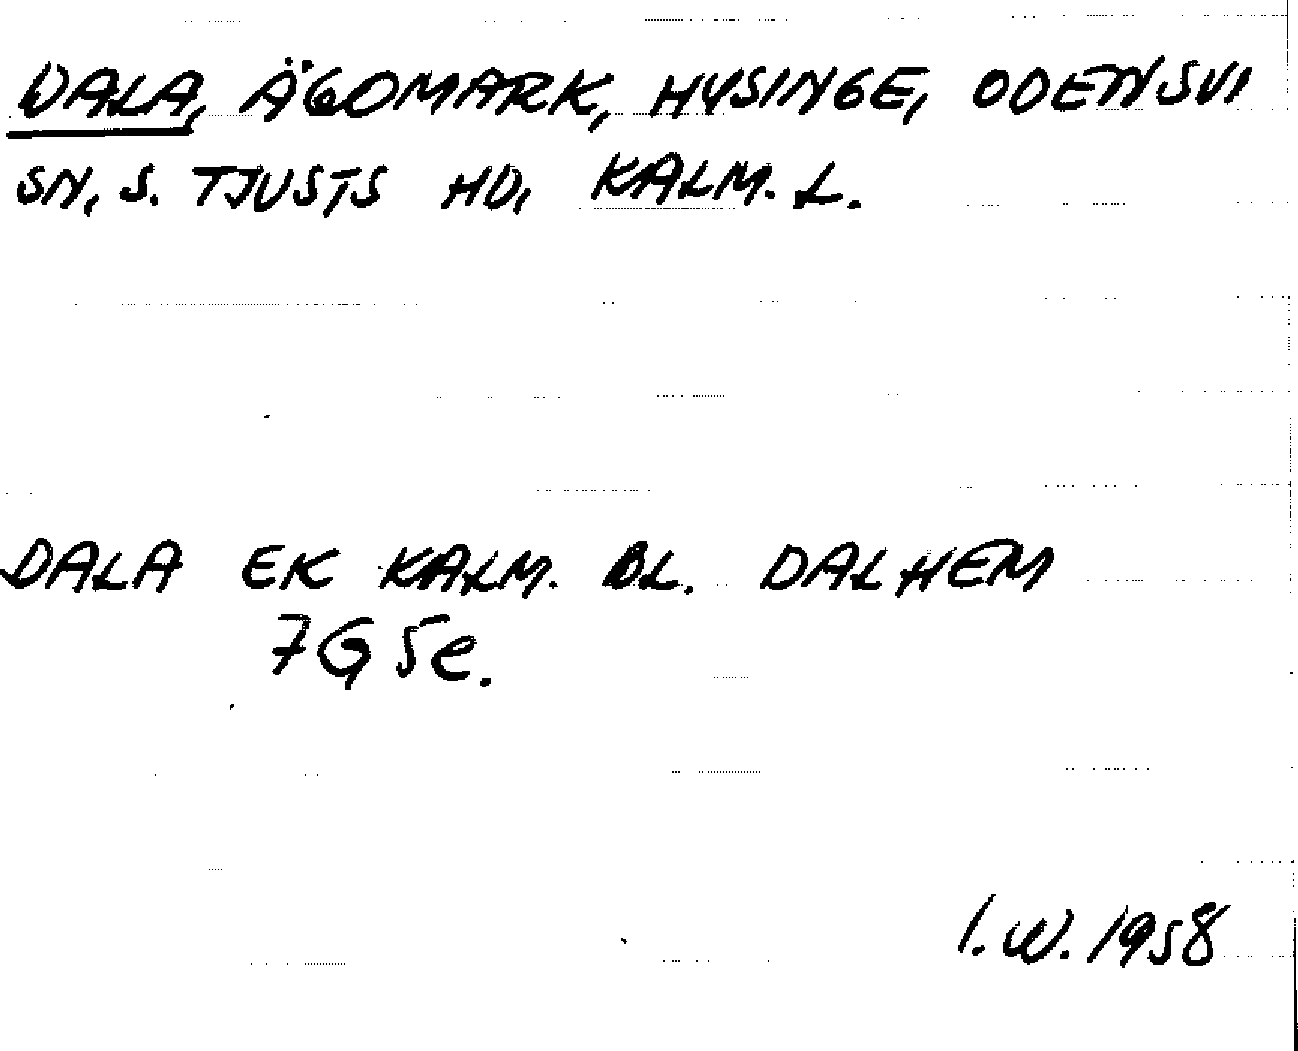 DALA, ÄGOMARK, HYSINGE, ODENSVI
SN, S. TJUSTS HD, KALM. L.
DALA EK KALM. BL. DALHEM
7G 5e.
I.W. 1958